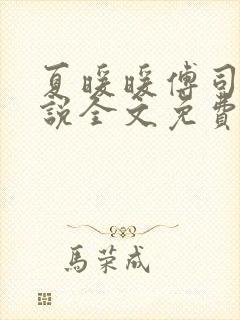 夏暖暖傅司
說全文免費
馬荣成